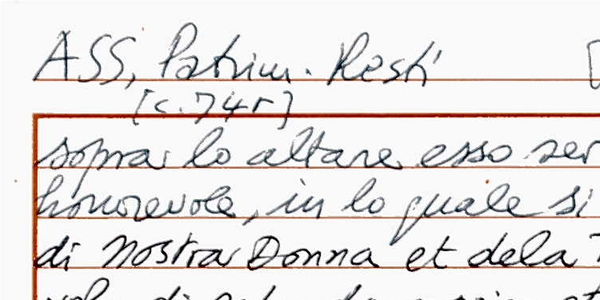 ASS, Patrim. Resti
[c. 74r]
sopra lo altare esso ser
honorevole, in lo quale si
di Nostra Donna et dela